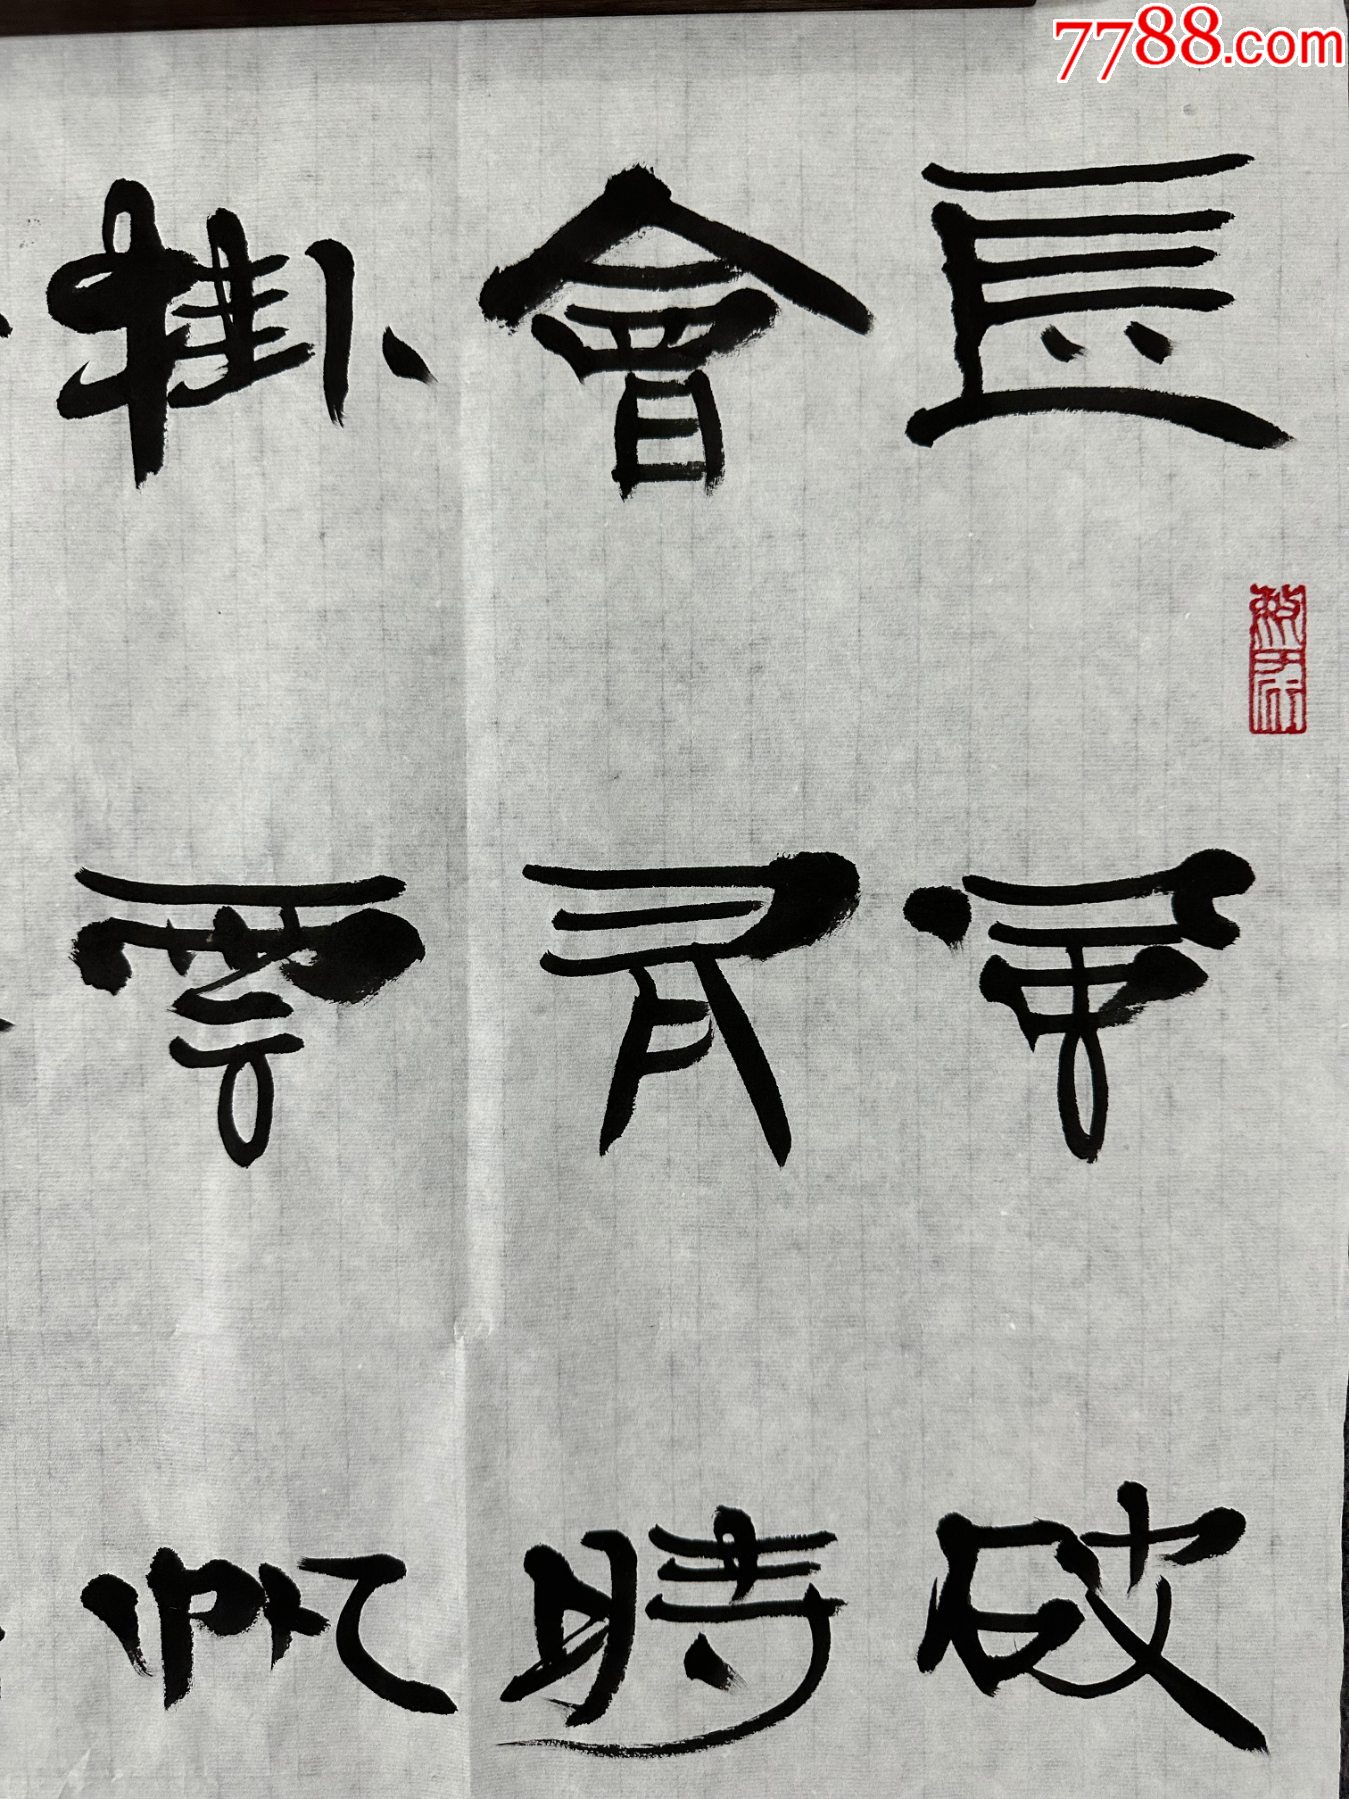 7788.com
長風破
會有時
掛雲帆